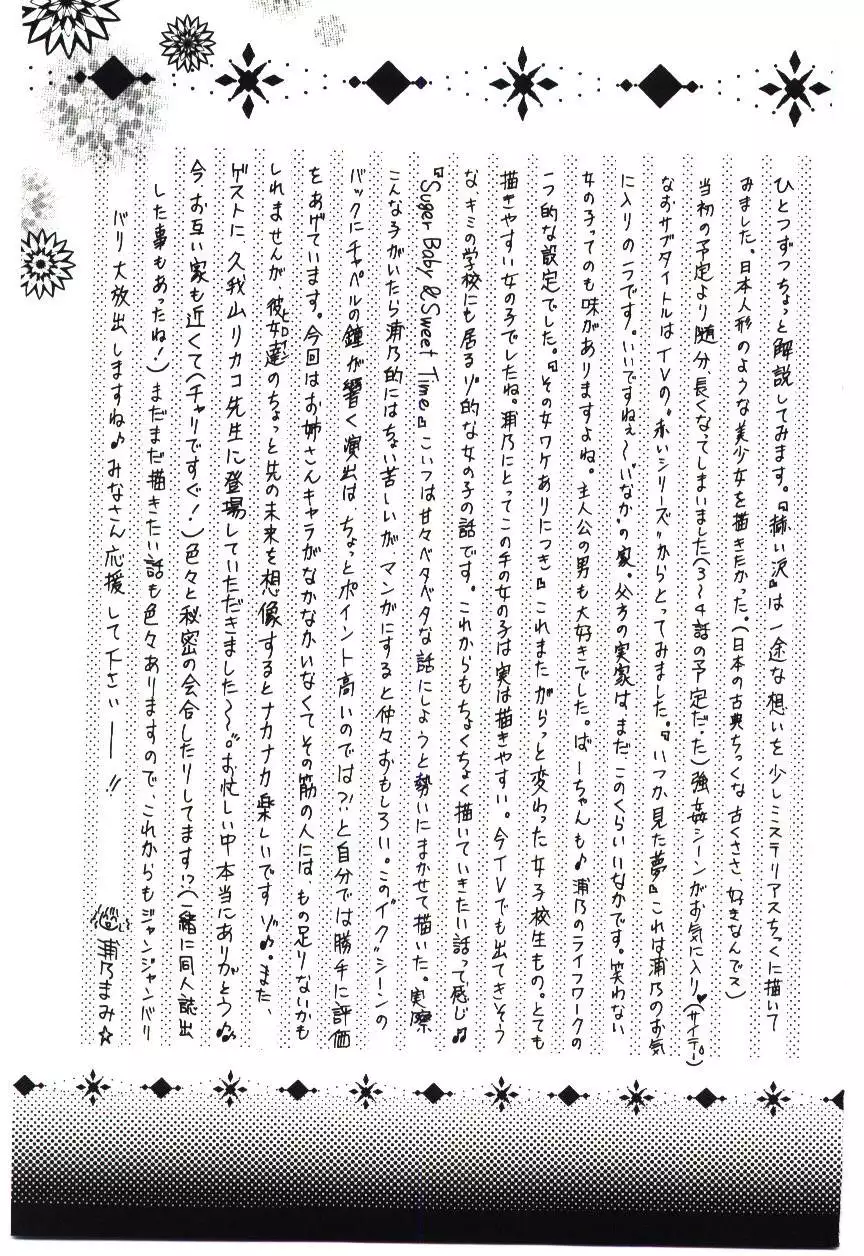 ひとつずつちょっと解説してみます。『赫い沢』は一途な想いを少しミステリアスちっくに描いて
みました。日本人形のような美少女を描きたかった。(日本の古典ちっくな古くささ、好きなんでス)
当初の予定より随分、長くなってしまいました(3〜4話の予定だった)強姦シーンがお気に入り♥(サイテー。)
なおサブタイトルはTVの"赤いシリーズ"からとってみました。『いつか見た夢』これは浦乃のお気
に入りの一ラです。いいですねぇ〜"いなか"の家。父方の実家は、まだこのくらいいなかです。笑わない
女の子ってのも味がありますよね。主人公の男も大好きでした。ばーちゃんも♪浦乃のライフワークの
一つ的な設定でした。『その女ワケありにつき』これまたがらっと変わった女子校生もの。とても
描きやすい女の子でしたね。浦乃にとってこの手の女の子は実は描きやすい。今TVでも出てきそう
な、キミの学校にも居るゾ的な女の子の話です。これからもちょくちょく描いていきたい話って感じ♫
『Suger Baby & Sweet Time』こいつは甘々ベタベタな話にしようと勢いにまかせて描いた。実際
こんな子がいたら浦乃的にはちょい苦しいが、マンガにすると仲々おもしろい。この"イク"シーンの
バックにチャペルの鐘が響く演出は、ちょっとポイント高いのでは?!と自分では勝手に評価
をあげています。今回はお姉さんキャラがなかなかいなくてその筋の人には、もの足りないかも
しれませんが、彼女達のちょっと先の未来を想像するとナカナカ楽しいですゾ♪。また、
ヒロイン
ゲストに久我山リカコ先生に登場していただきました〜〜。お忙しい中本当にありがとう♫
今お互い家も近くて(チャリですぐ!)色々と秘密の会合したりしてます!?(一緒に同人誌出
した事もあったね!)まだまだ描きたい話も色々ありますので、これからもジャンジャンバリ
バリ大放出しますね♪みなさん応援して下さいー!!
浦乃まみ☆